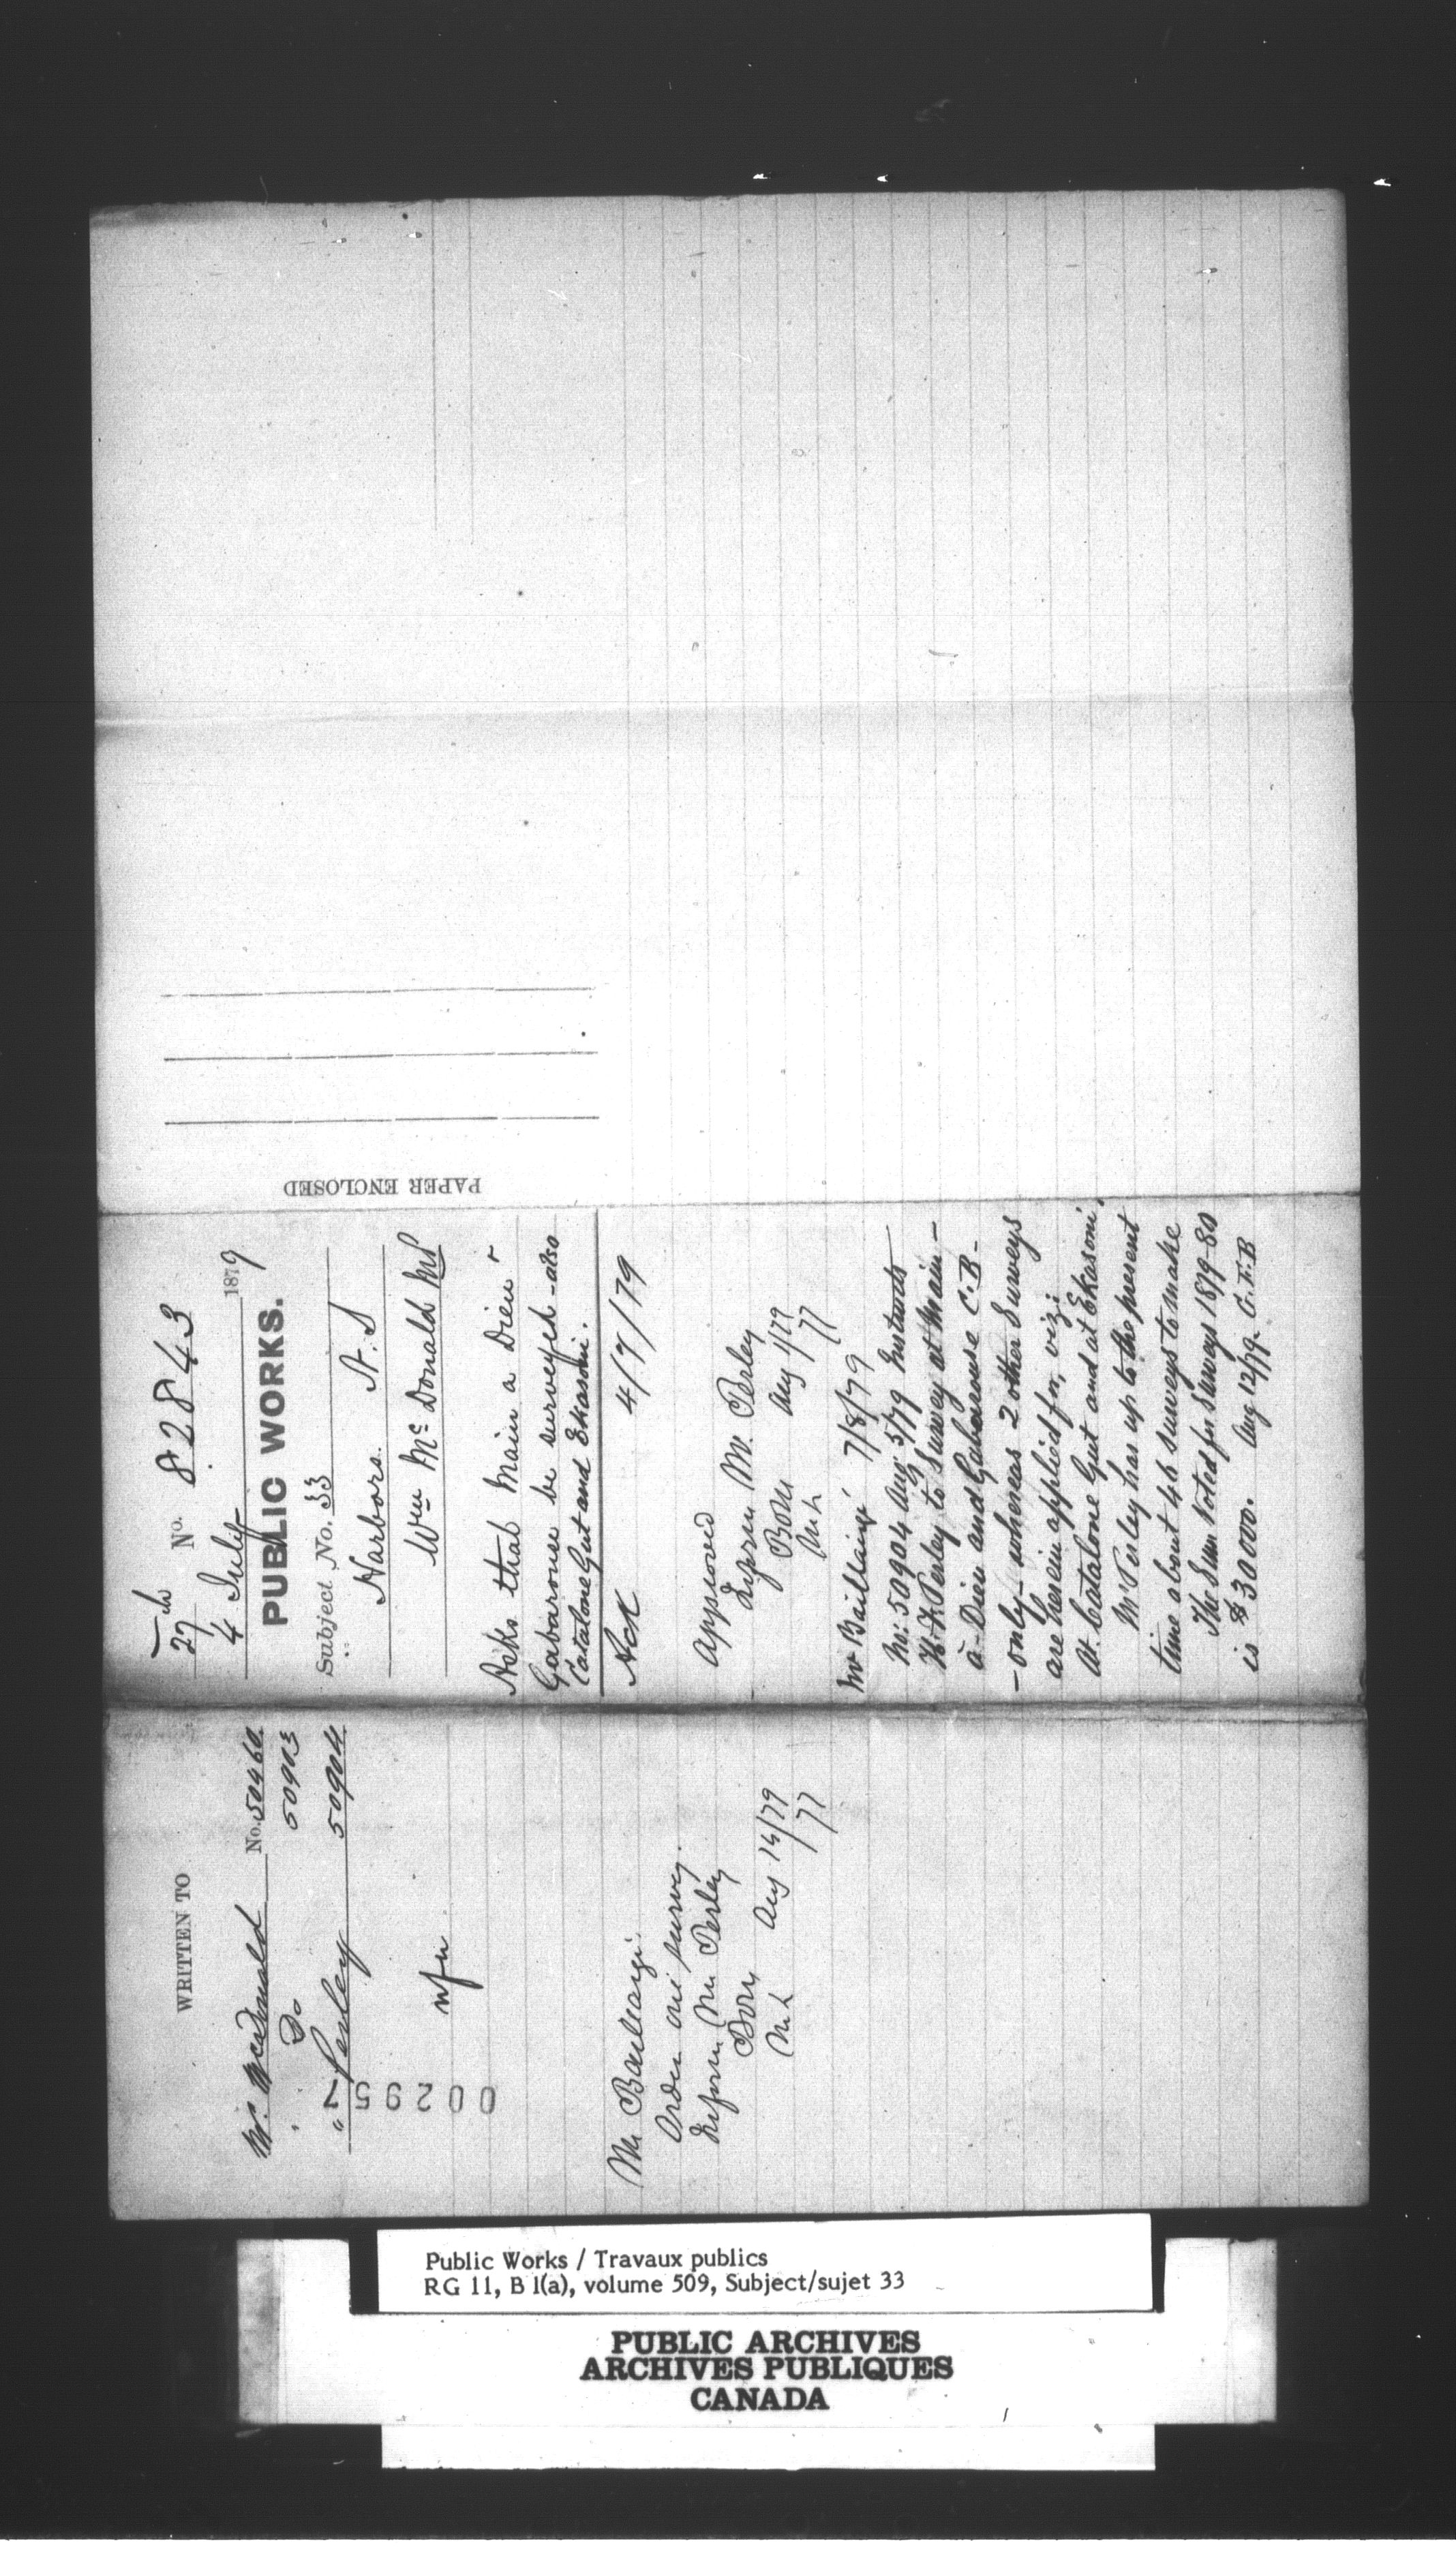 27 No. 82843
4 July 1879
PUBLIC WORKS.
Subject No. 33
Harbors. N.S
Wm McDonald MP
Asks that Main a Dieu &
Gabarouse be surveyed - also
Catalone Gut and Eskasoni.
Ack 4/7/79
Approved
Inform Mr. Perley
Aug 1/79
Mr Baillairgé 7/8/79
No: 50904 Aug 5/79 Instructs
H. F. Perley to Survey at Main-
à-Dieu and Gabarouse C.B-
-only- whereas 2 other Surveys
are herein applied for, viz:
At Catalone Gut and at Eskasoni.
Mr Perley has up to the present
time about 46 surveys to make
The Sum voted for Surveys 1879-80
is $30000. Aug 12/79. G.F.B
PAPER ENCLOSED
WRITTEN TO
Mr. McDonald No. 50460
" Do 50903
" Perley 50904
002957
Mr Baillairgé.
Order one survey.
Inform Mr Perley
Aug 14/79
Public Works / Travaux publics
RG 11, B 1(a), volume 509, Subject/sujet 33
PUBLIC ARCHIVES
ARCHIVES PUBLIQUES
CANADA